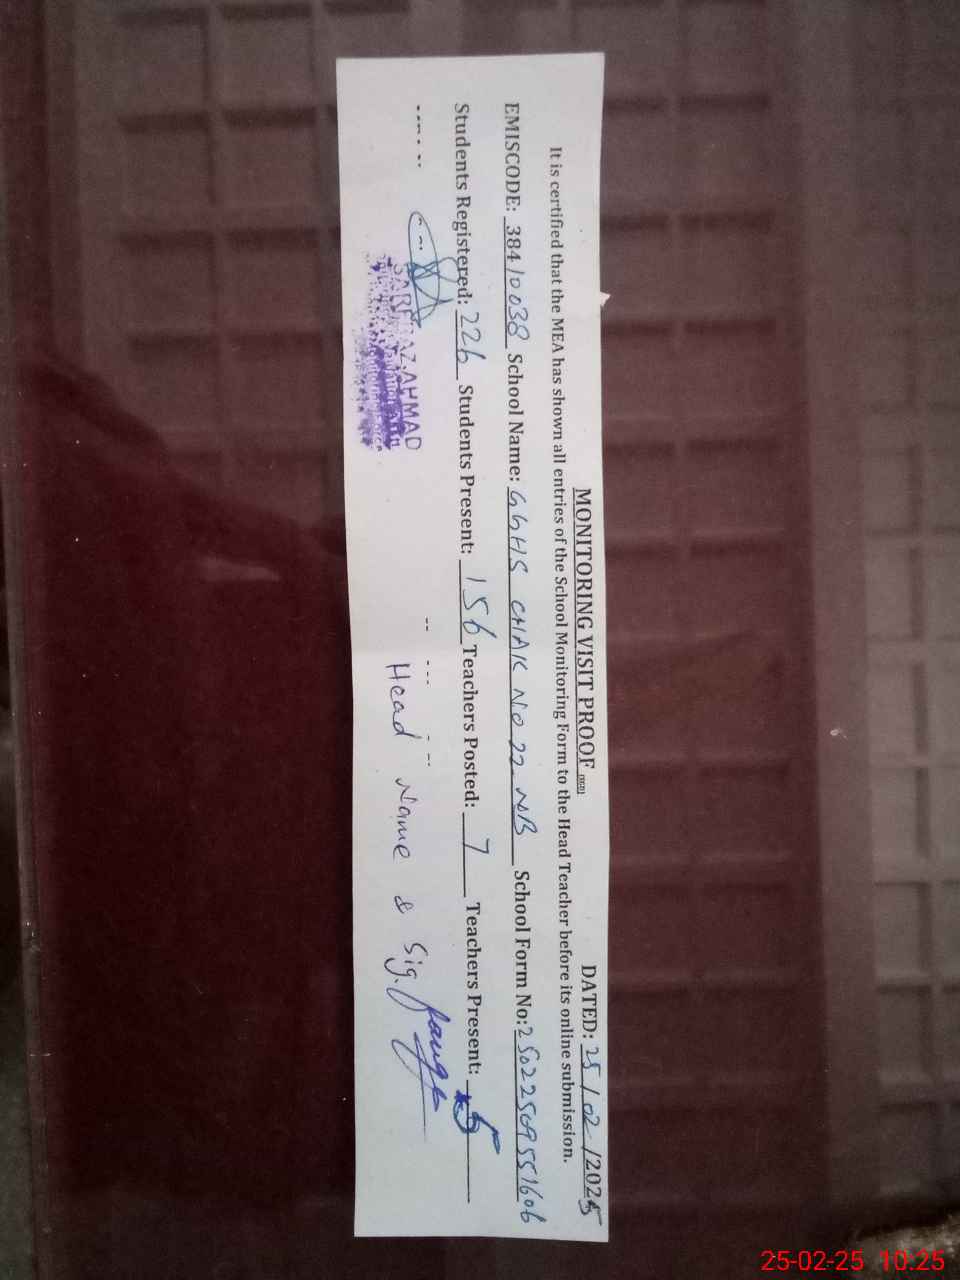 MONITORING VISIT PROOF DATED: 25/02/2025
It is certified that the MEA has shown all entries of the School Monitoring Form to the Head Teacher before its online submission.
EMISCODE: 38410038 School Name: GGHS CHAK NO 22 NB School Form No: 250225095551606
Students Registered: 226 Students Present: 156 Teachers Posted: 7 Teachers Present: 5
AHMAD
Head Name & Sig.
25-02-25 10:25